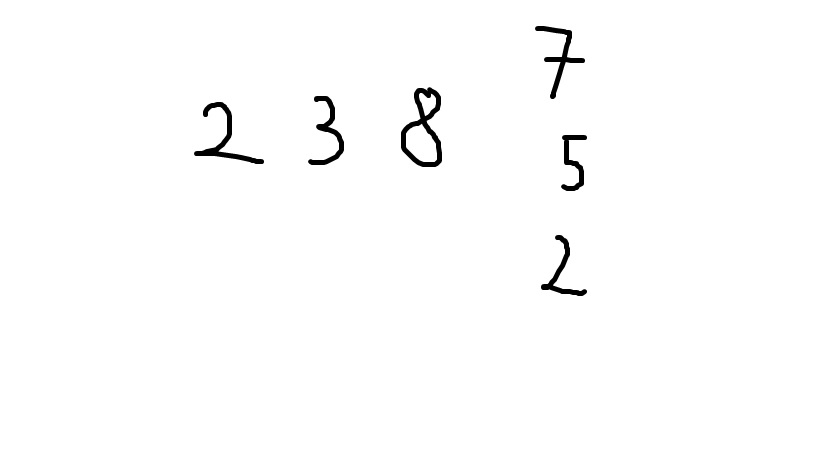 2 3 8
7
5
2